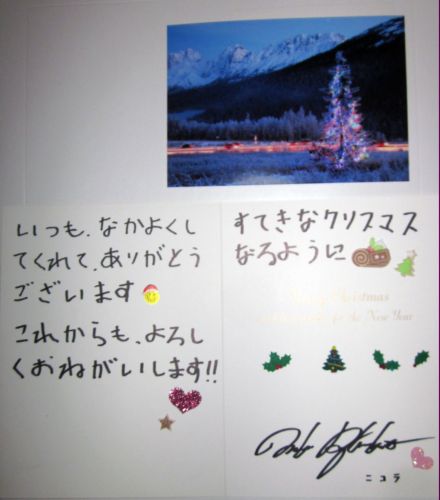 いつも、なかよくし
てくれて、ありがとう
ございます
これからも、よろし
くおねがいします!!
すてきなクリスマス
なるように
Merry Christmas
for the New Year
ニコラ